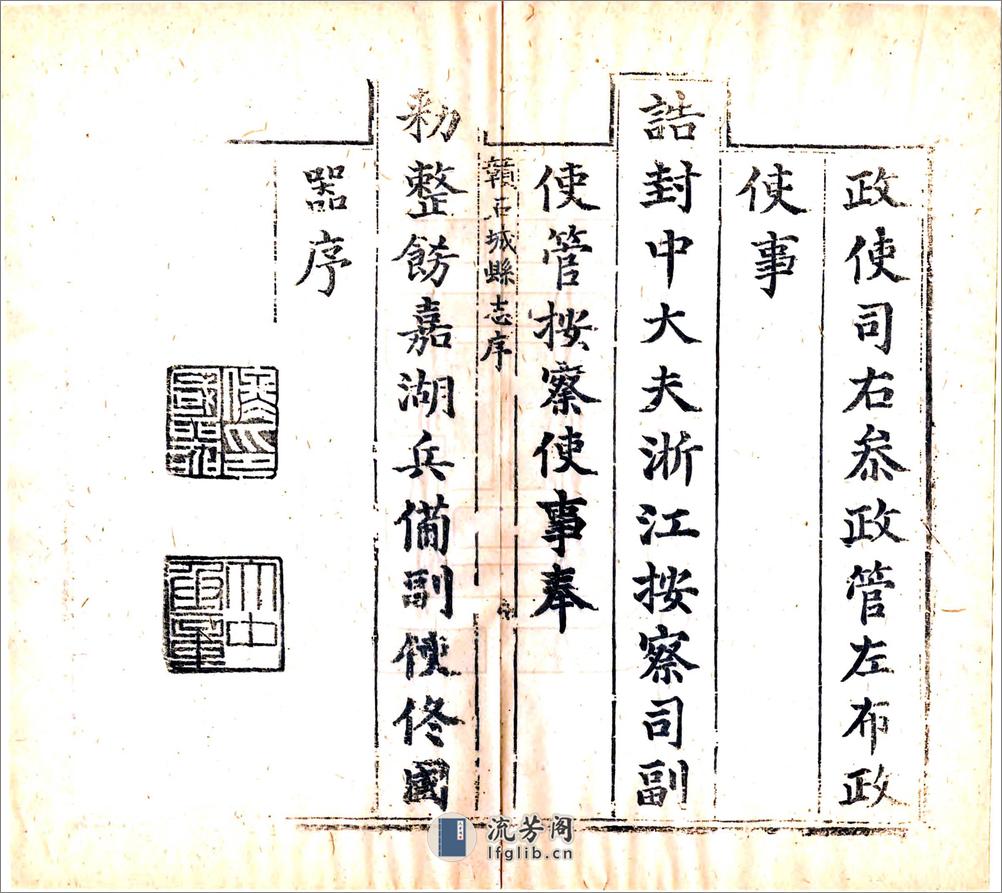 政使司右叅政管左布政
使事
誥封中大夫浙江按察司副
使管按察使事奉
贛石城縣志序
勑整飭嘉湖兵備副使佟國
器序
佟印國器
流芳阁
lfglib.cn